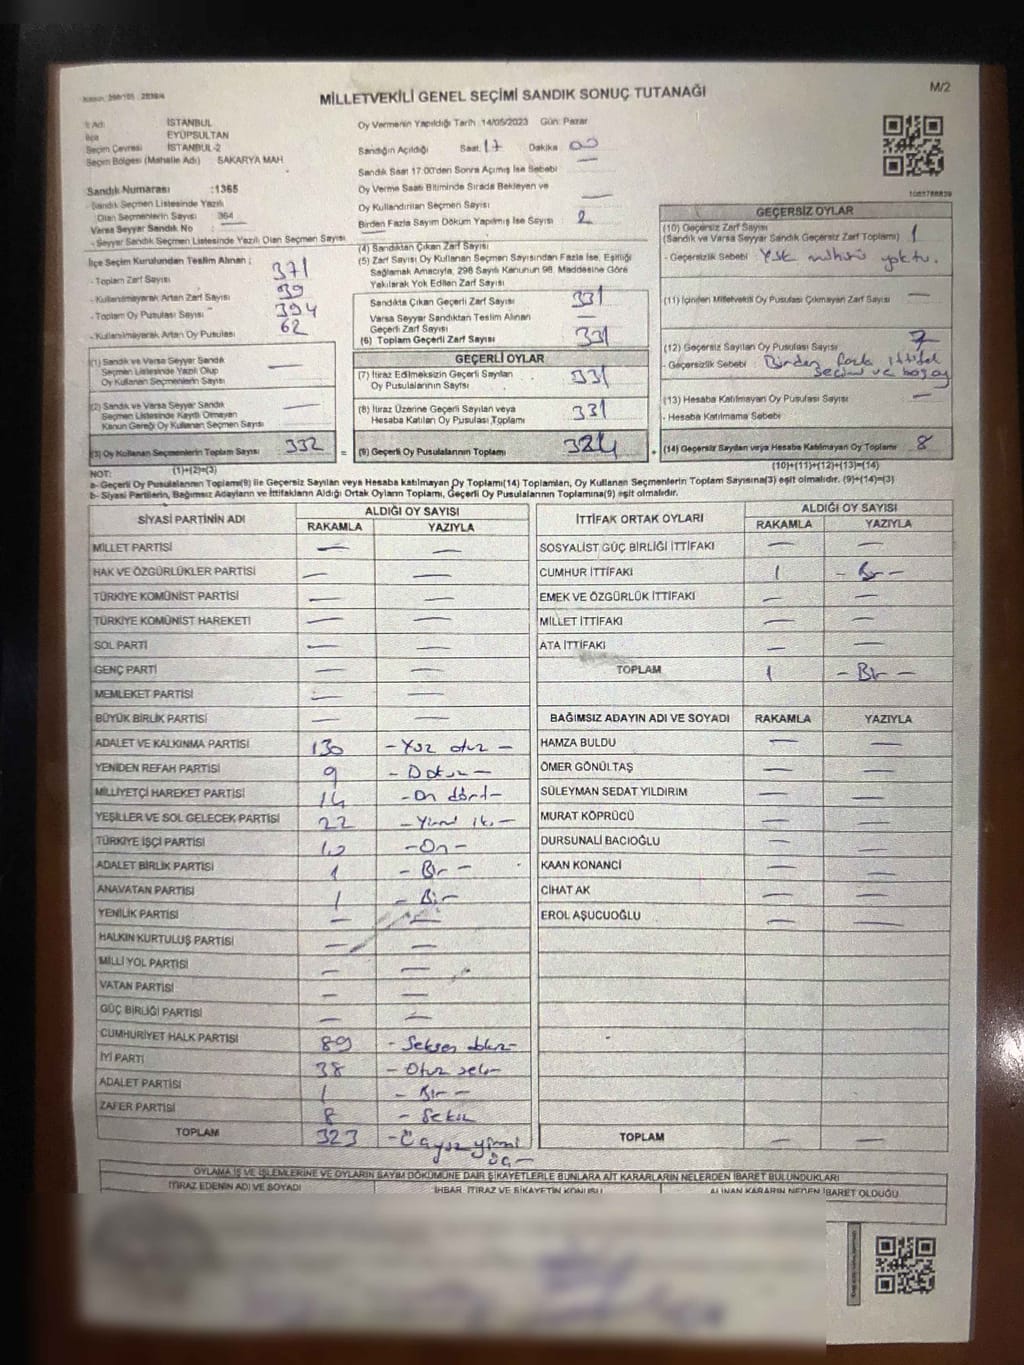 MİLLETVEKİLİ GENEL SEÇİMİ SANDIK SONUÇ TUTANAĞI
M/2
İl Adı İSTANBUL
İlçe EYÜPSULTAN
Seçim Çevresi İSTANBUL-2
Seçim Bölgesi (Mahalle Adı) SAKARYA MAH
Sandık Numarası :1365
Sandık Seçmen Listesinde Yazılı
Olan Seçmenlerin Sayısı 364
Varsa Seyyar Sandık No
- Seyyar Sandık Seçmen Listesinde Yazılı Olan Seçmen Sayısı
İlçe Seçim Kurulundan Teslim Alınan ;
- Toplam Zarf Sayısı 371
- Kullanılmayarak Artan Zarf Sayısı 39
- Toplam Oy Pusulası Sayısı 394
- Kullanılmayarak Artan Oy Pusulası 62
(1) Sandık ve Varsa Seyyar Sandık
Seçmen Listesinde Yazılı Olup
Oy Kullanan Seçmenlerin Sayısı —
(2) Sandık ve Varsa Seyyar Sandık
Seçmen Listesinde Kayıtlı Olmayan
Kanun Gereği Oy Kullanan Seçmen Sayısı —
(3) Oy Kullanan Seçmenlerin Toplam Sayısı 332 =
(1)+(2)=(3)
Oy Vermenin Yapıldığı Tarih 14/05/2023 Gün: Pazar
Sandığın Açıldığı Saat: 17 Dakika 00
Sandık Saat 17:00'den Sonra Açılmış İse Sebebi —
Oy Verme Saati Bitiminde Sırada Bekleyen ve
Oy Kullandırılan Seçmen Sayısı —
Birden Fazla Sayım Döküm Yapılmış İse Sayısı : 2
(4) Sandıktan Çıkan Zarf Sayısı
(5) Zarf Sayısı Oy Kullanan Seçmen Sayısından Fazla İse, Eşitliği
Sağlamak Amacıyla, 298 Sayılı Kanunun 98. Maddesine Göre
Yakılarak Yok Edilen Zarf Sayısı
Sandıkta Çıkan Geçerli Zarf Sayısı 331
Varsa Seyyar Sandıktan Teslim Alınan
Geçerli Zarf Sayısı —
(6) Toplam Geçerli Zarf Sayısı 331
GEÇERLİ OYLAR
(7) İtiraz Edilmeksizin Geçerli Sayılan
Oy Pusulalarının Sayısı 331
(8) İtiraz Üzerine Geçerli Sayılan veya
Hesaba Katılan Oy Pusulası Toplamı 331
(9) Geçerli Oy Pusulalarının Toplamı 324 +
GEÇERSİZ OYLAR
(10) Geçersiz Zarf Sayısı
(Sandık ve Varsa Seyyar Sandık Geçersiz Zarf Toplamı) 1
- Geçersizlik Sebebi Ysk mührü yoktu.
(11) İçinden Milletvekili Oy Pusulası Çıkmayan Zarf Sayısı —
(12) Geçersiz Sayılan Oy Pusulası Sayısı 7
- Geçersizlik Sebebi : Birden fazla ittifak
seçimi ve
(13) Hesaba Katılmayan Oy Pusulası Sayısı —
- Hesaba Katılmama Sebebi
(14) Geçersiz Sayılan veya Hesaba Katılmayan Oy Toplamı 8
(10)+(11)+(12)+(13)=(14)
NOT:
a- Geçerli Oy Pusulalarının Toplamı(9) ile Geçersiz Sayılan veya Hesaba katılmayan Oy Toplamı(14) Toplamları, Oy Kullanan Seçmenlerin Toplam Sayısına(3) eşit olmalıdır. (9)+(14)=(3)
b- Siyasi Partilerin, Bağımsız Adayların ve İttifakların Aldığı Ortak Oyların Toplamı, Geçerli Oy Pusulalarının Toplamına(9) eşit olmalıdır.
SİYASİ PARTİNİN ADI ALDIĞI OY SAYISI
RAKAMLA YAZIYLA
MİLLET PARTİSİ — —
HAK VE ÖZGÜRLÜKLER PARTİSİ — —
TÜRKİYE KOMÜNİST PARTİSİ — —
TÜRKİYE KOMÜNİST HAREKETİ — —
SOL PARTİ — —
GENÇ PARTİ — —
MEMLEKET PARTİSİ — —
BÜYÜK BİRLİK PARTİSİ — —
ADALET VE KALKINMA PARTİSİ 130 - Yüz otuz -
YENİDEN REFAH PARTİSİ 9 - Dokuz -
MİLLİYETÇİ HAREKET PARTİSİ 14 - On dört -
YEŞİLLER VE SOL GELECEK PARTİSİ 22 - Yirmi iki -
TÜRKİYE İŞÇİ PARTİSİ 10 - On -
ADALET BİRLİK PARTİSİ 1 - Bir -
ANAVATAN PARTİSİ 1 - Bir -
YENİLİK PARTİSİ — —
HALKIN KURTULUŞ PARTİSİ — —
MİLLİ YOL PARTİSİ — —
VATAN PARTİSİ — —
GÜÇ BİRLİĞİ PARTİSİ — —
CUMHURİYET HALK PARTİSİ 89 - Seksen dokuz -
İYİ PARTİ 38 - Otuz sekiz -
ADALET PARTİSİ 1 - Bir -
ZAFER PARTİSİ 8 - Sekiz
TOPLAM 323 - Üçyüz yirmi
üç -
İTTİFAK ORTAK OYLARI ALDIĞI OY SAYISI
RAKAMLA YAZIYLA
SOSYALİST GÜÇ BİRLİĞİ İTTİFAKI — —
CUMHUR İTTİFAKI 1 - Bir -
EMEK VE ÖZGÜRLÜK İTTİFAKI — —
MİLLET İTTİFAKI — —
ATA İTTİFAKI — —
TOPLAM 1 - Bir -
BAĞIMSIZ ADAYIN ADI VE SOYADI RAKAMLA YAZIYLA
HAMZA BULDU — —
ÖMER GÖNÜLTAŞ — —
SÜLEYMAN SEDAT YILDIRIM — —
MURAT KÖPRÜCÜ — —
DURSUNALİ BACIOĞLU — —
KAAN KONANCİ — —
CİHAT AK — —
EROL AŞUCUOĞLU — —
TOPLAM — —
OYLAMA İŞ VE İŞLEMLERİNE VE OYLARIN SAYIM DÖKÜMÜNE DAİR ŞİKAYETLERLE BUNLARA AİT KARARLARIN NELERDEN İBARET BULUNDUKLARI
İTİRAZ EDENİN ADI VE SOYADI İHBAR, İTİRAZ VE ŞİKAYETİN KONUSU ALINAN KARARIN NEDEN İBARET OLDUĞU